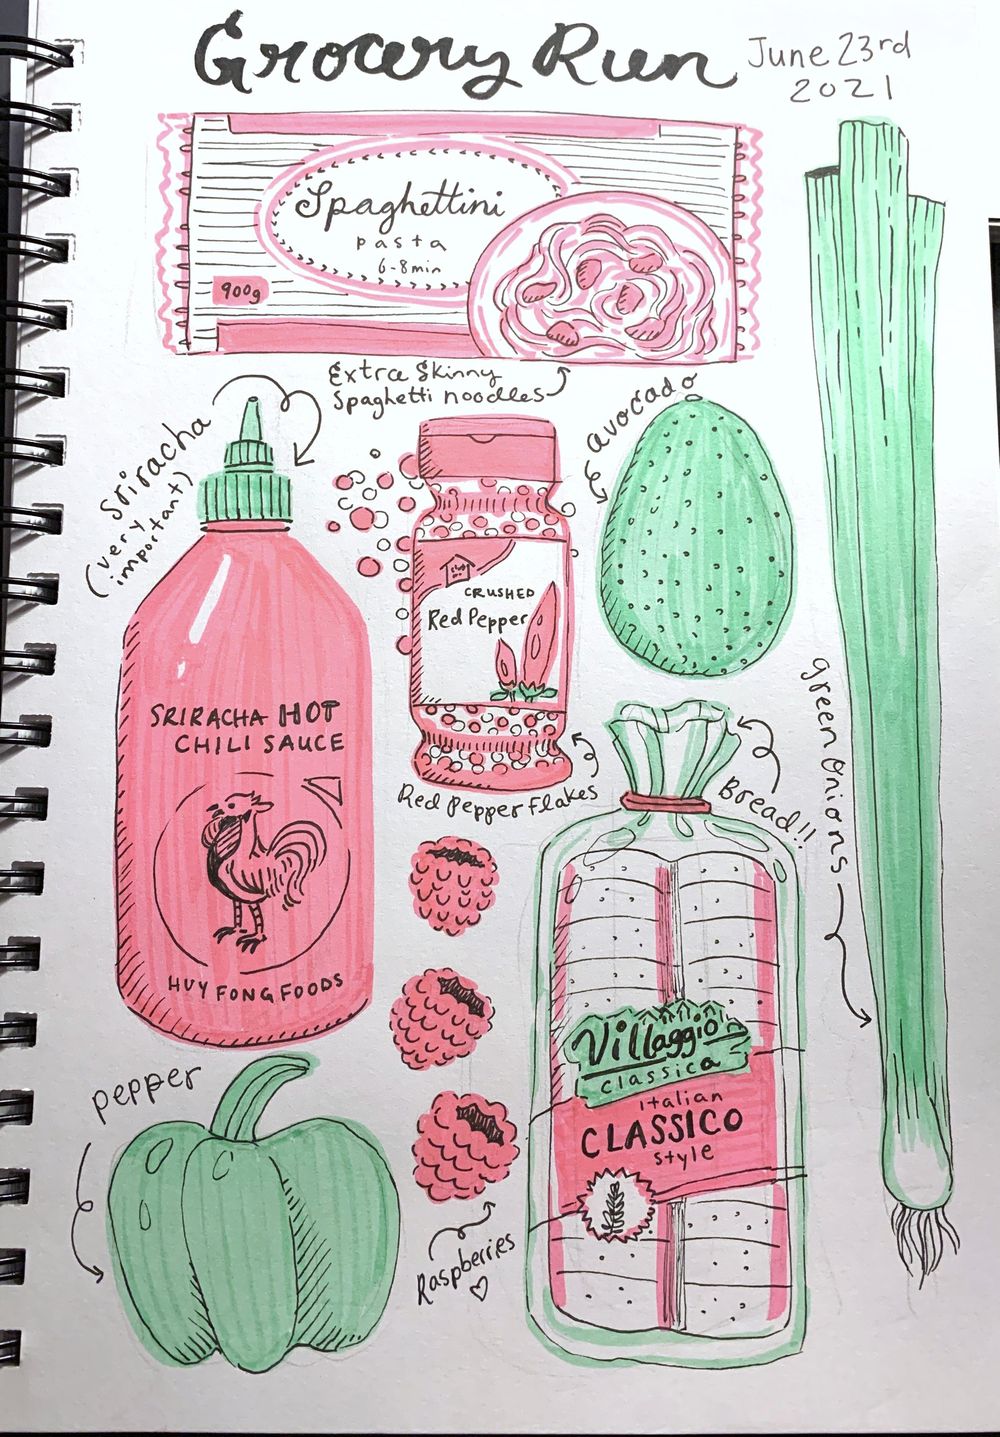 Grocery Run
June 23rd
2021
Spaghettini
pasta
6-8min
900g
Extra Skinny
Spaghetti noodles
sriracha
(very
important)
avocado
CRUSHED
Red Pepper
SRIRACHA HOT
CHILI SAUCE
HUY FONG FOODS
Red Pepper Flakes
green onions
Bread!!
Villaggio
classica
italian
CLASSICO
style
pepper
Raspberries